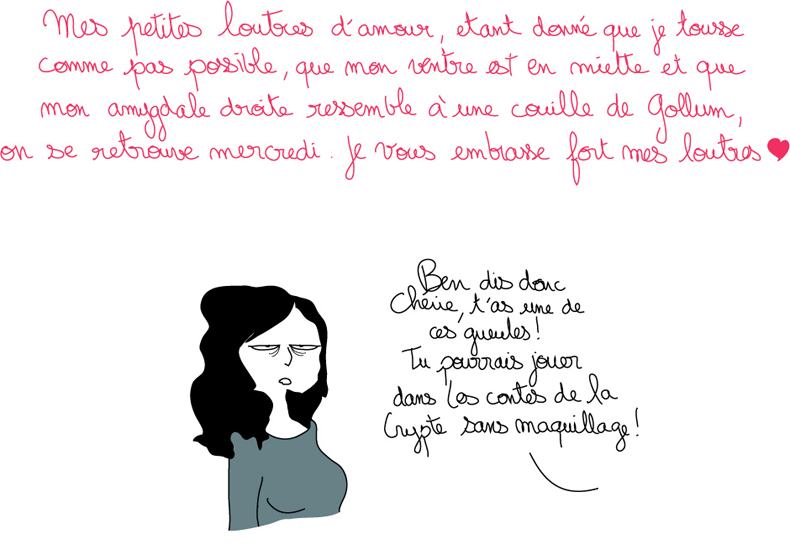 Mes petites loutres d'amour, etant donné que je tousse
comme pas possible, que mon ventre est en miette et que
mon amygdale droite ressemble à une couille de Gollum,
on se retrouve mercredi. Je vous embrasse fort mes loutres
Ben dis donc
Chérie, t'as une de
ces gueules!
Tu pourrais jouer
dans les contes de la
Crypte sans maquillage!